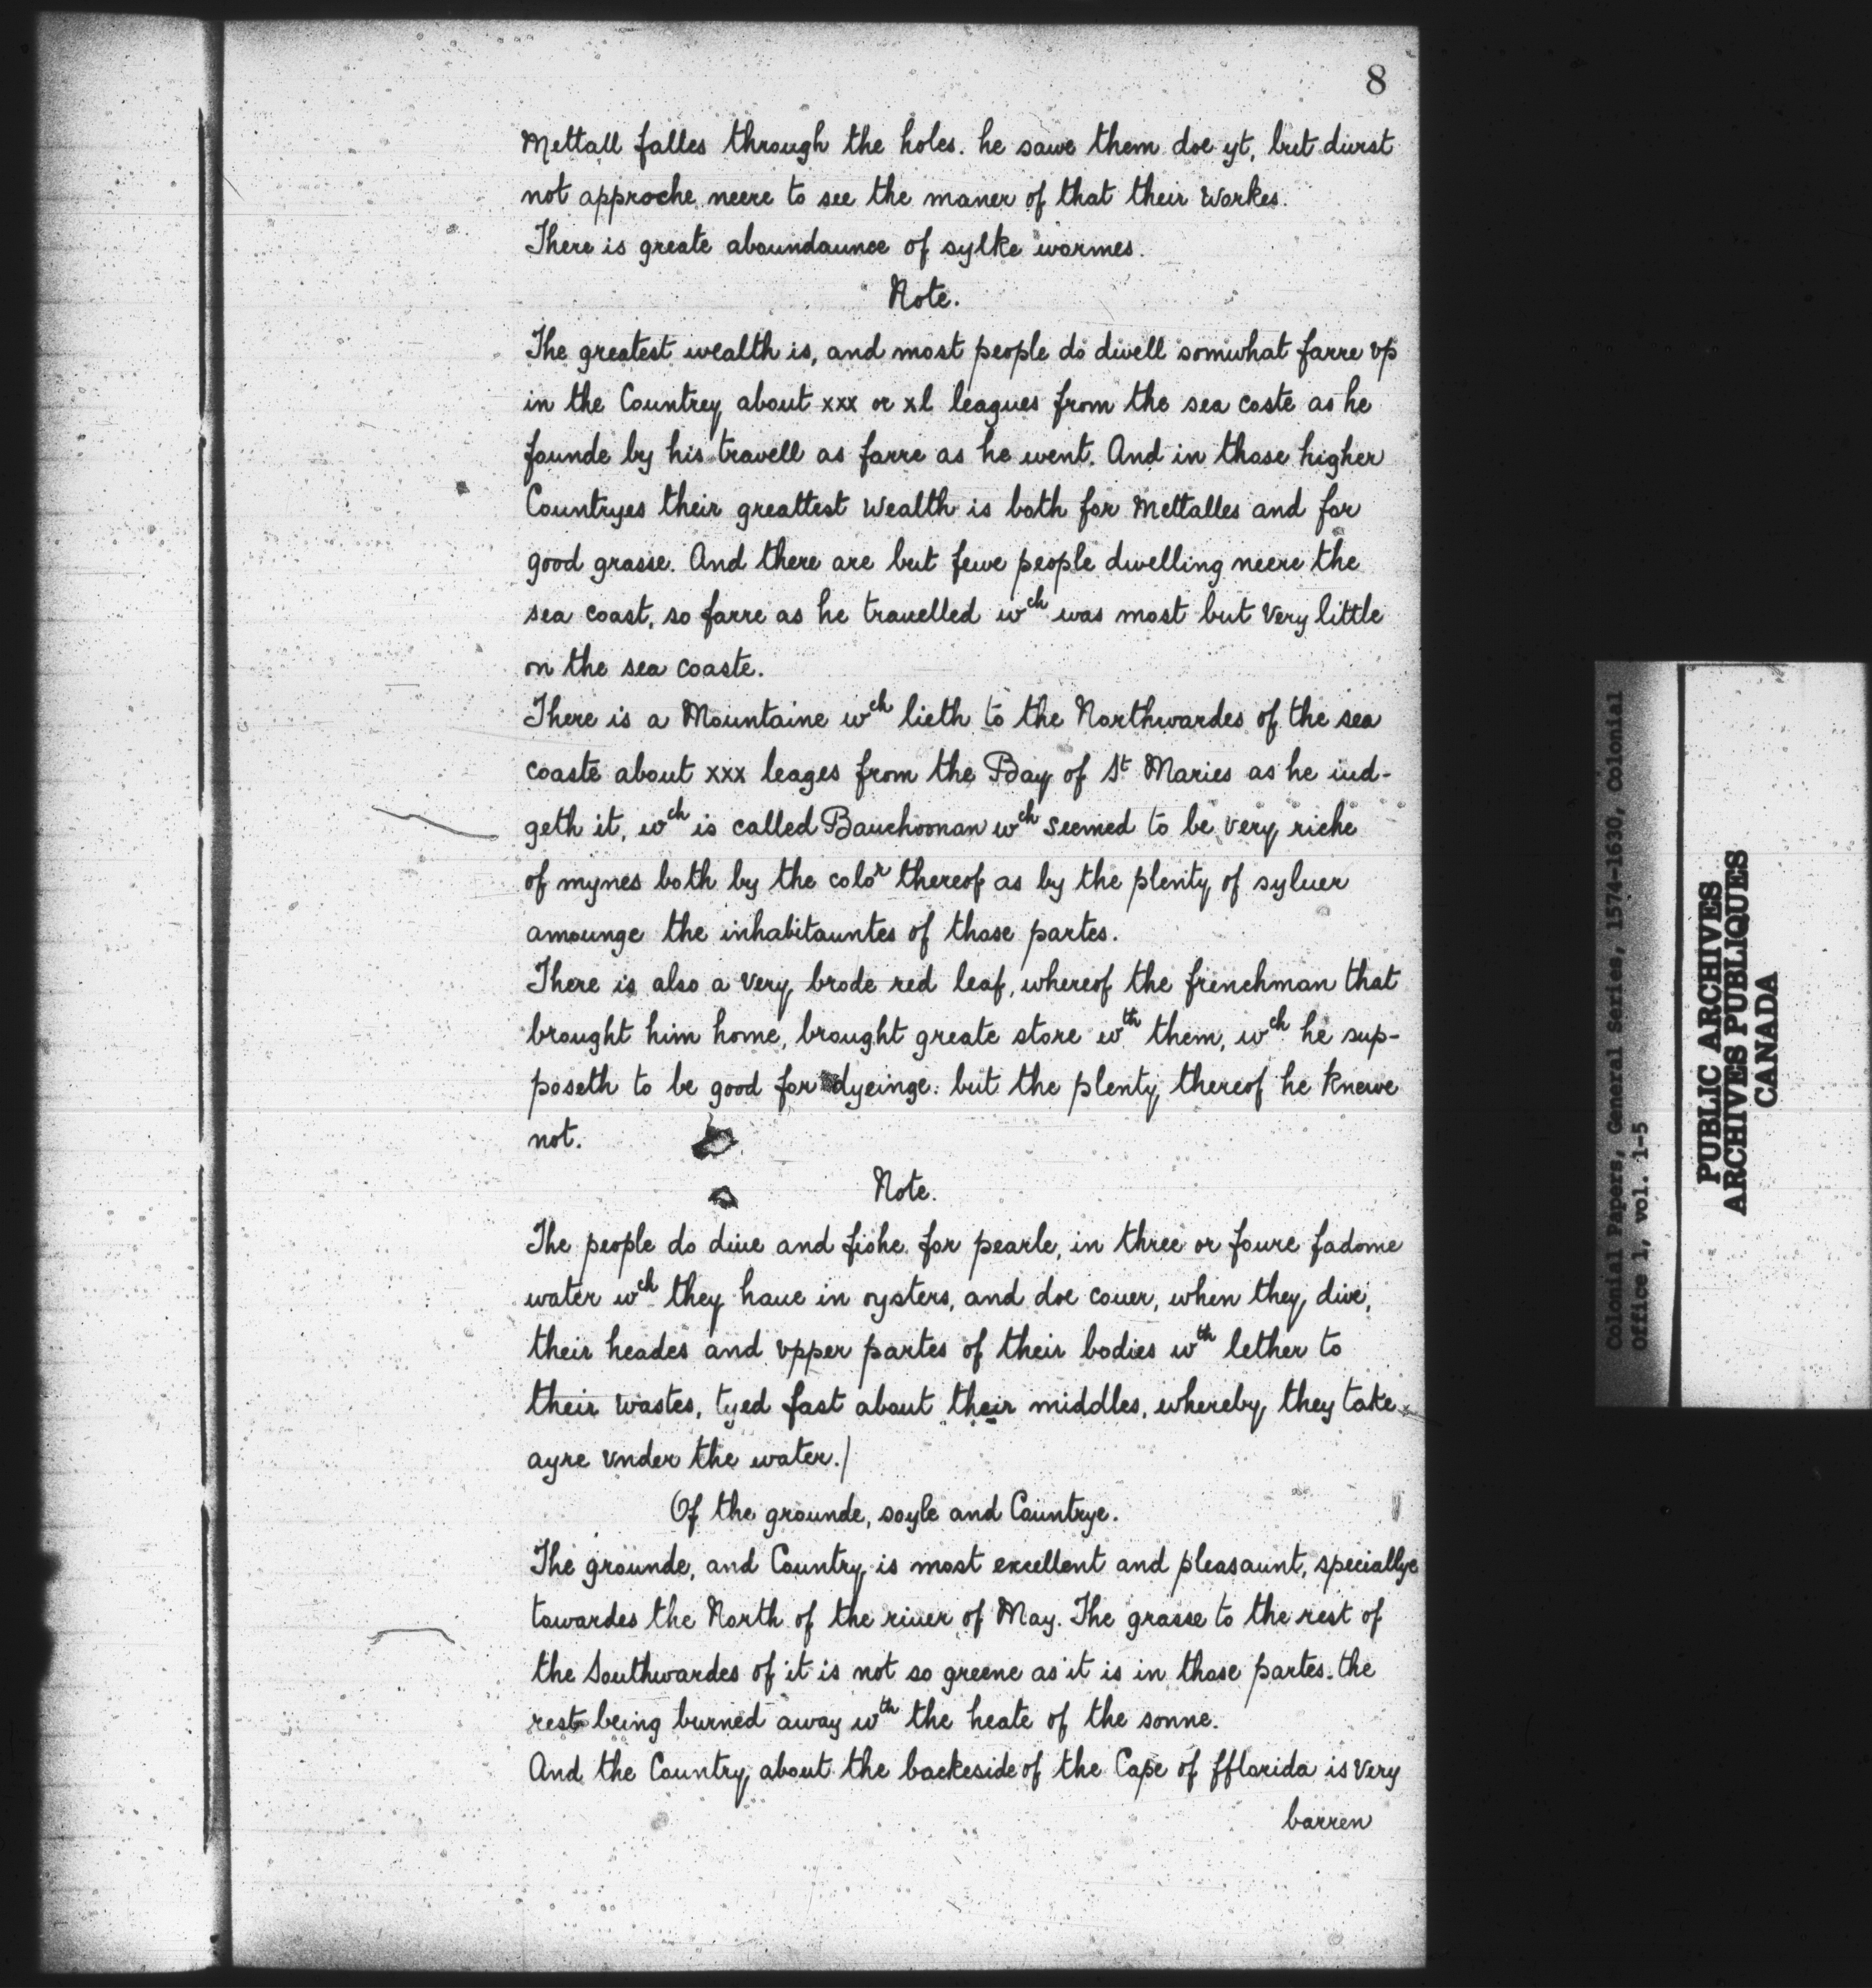 8
Mettall falles through the holes. he sawe them doe yt, but durst
not approche neere to see the maner of that their Workes.
There is greate aboundaunce of sylke wormes.
Note.
The greatest wealth is, and most people do dwell somwhat farre vp
in the Countrey about xxx or xl leagues from the sea coste as he
founde by his travell as farre as he went. And in those higher
Countryes their greattest Wealth is both for Mettalles and for
good grasse. And there are but fewe people dwelling neere the
sea coast, so farre as he trauelled wch was most but very little
on the sea coaste.
There is a Mountaine wch lieth to the Northwardes of the sea
coaste about xxx leages from the Bay of St Maries as he iud-
geth it, wch is called Bauchoonan wch seemed to be very riche
of mynes both by the color thereof as by the plenty of syluer
amounge the inhabitauntes of those partes.
There is also a very brode red leaf, whereof the frenchman that
brought him home, brought greate store wth them, wch he sup-
poseth to be good for dyeinge: but the plenty thereof he knewe
not.
Note.
The people do diue and fishe for pearle, in three or foure fadome
water wch they haue in oysters, and doe couer, when they dive,
their heades and vpper partes of their bodies wth lether to
their wastes, tyed fast about their middles, whereby they take
ayre vnder the water./
Of the grounde, soyle and Countrye.
The grounde, and Country is most excellent and pleasaunt, speciallye
towardes the North of the riuer of May. The grasse to the rest of
the Southwardes of it is not so greene as it is in those partes. the
rest being burned away wth the heate of the sonne.
And the Country about the backeside of the Cape of fflorida is very
barren
Colonial Papers, General Series, 1574-1630, Colonial
Office 1, vol. 1-5
PUBLIC ARCHIVES
ARCHIVES PUBLIQUES
CANADA